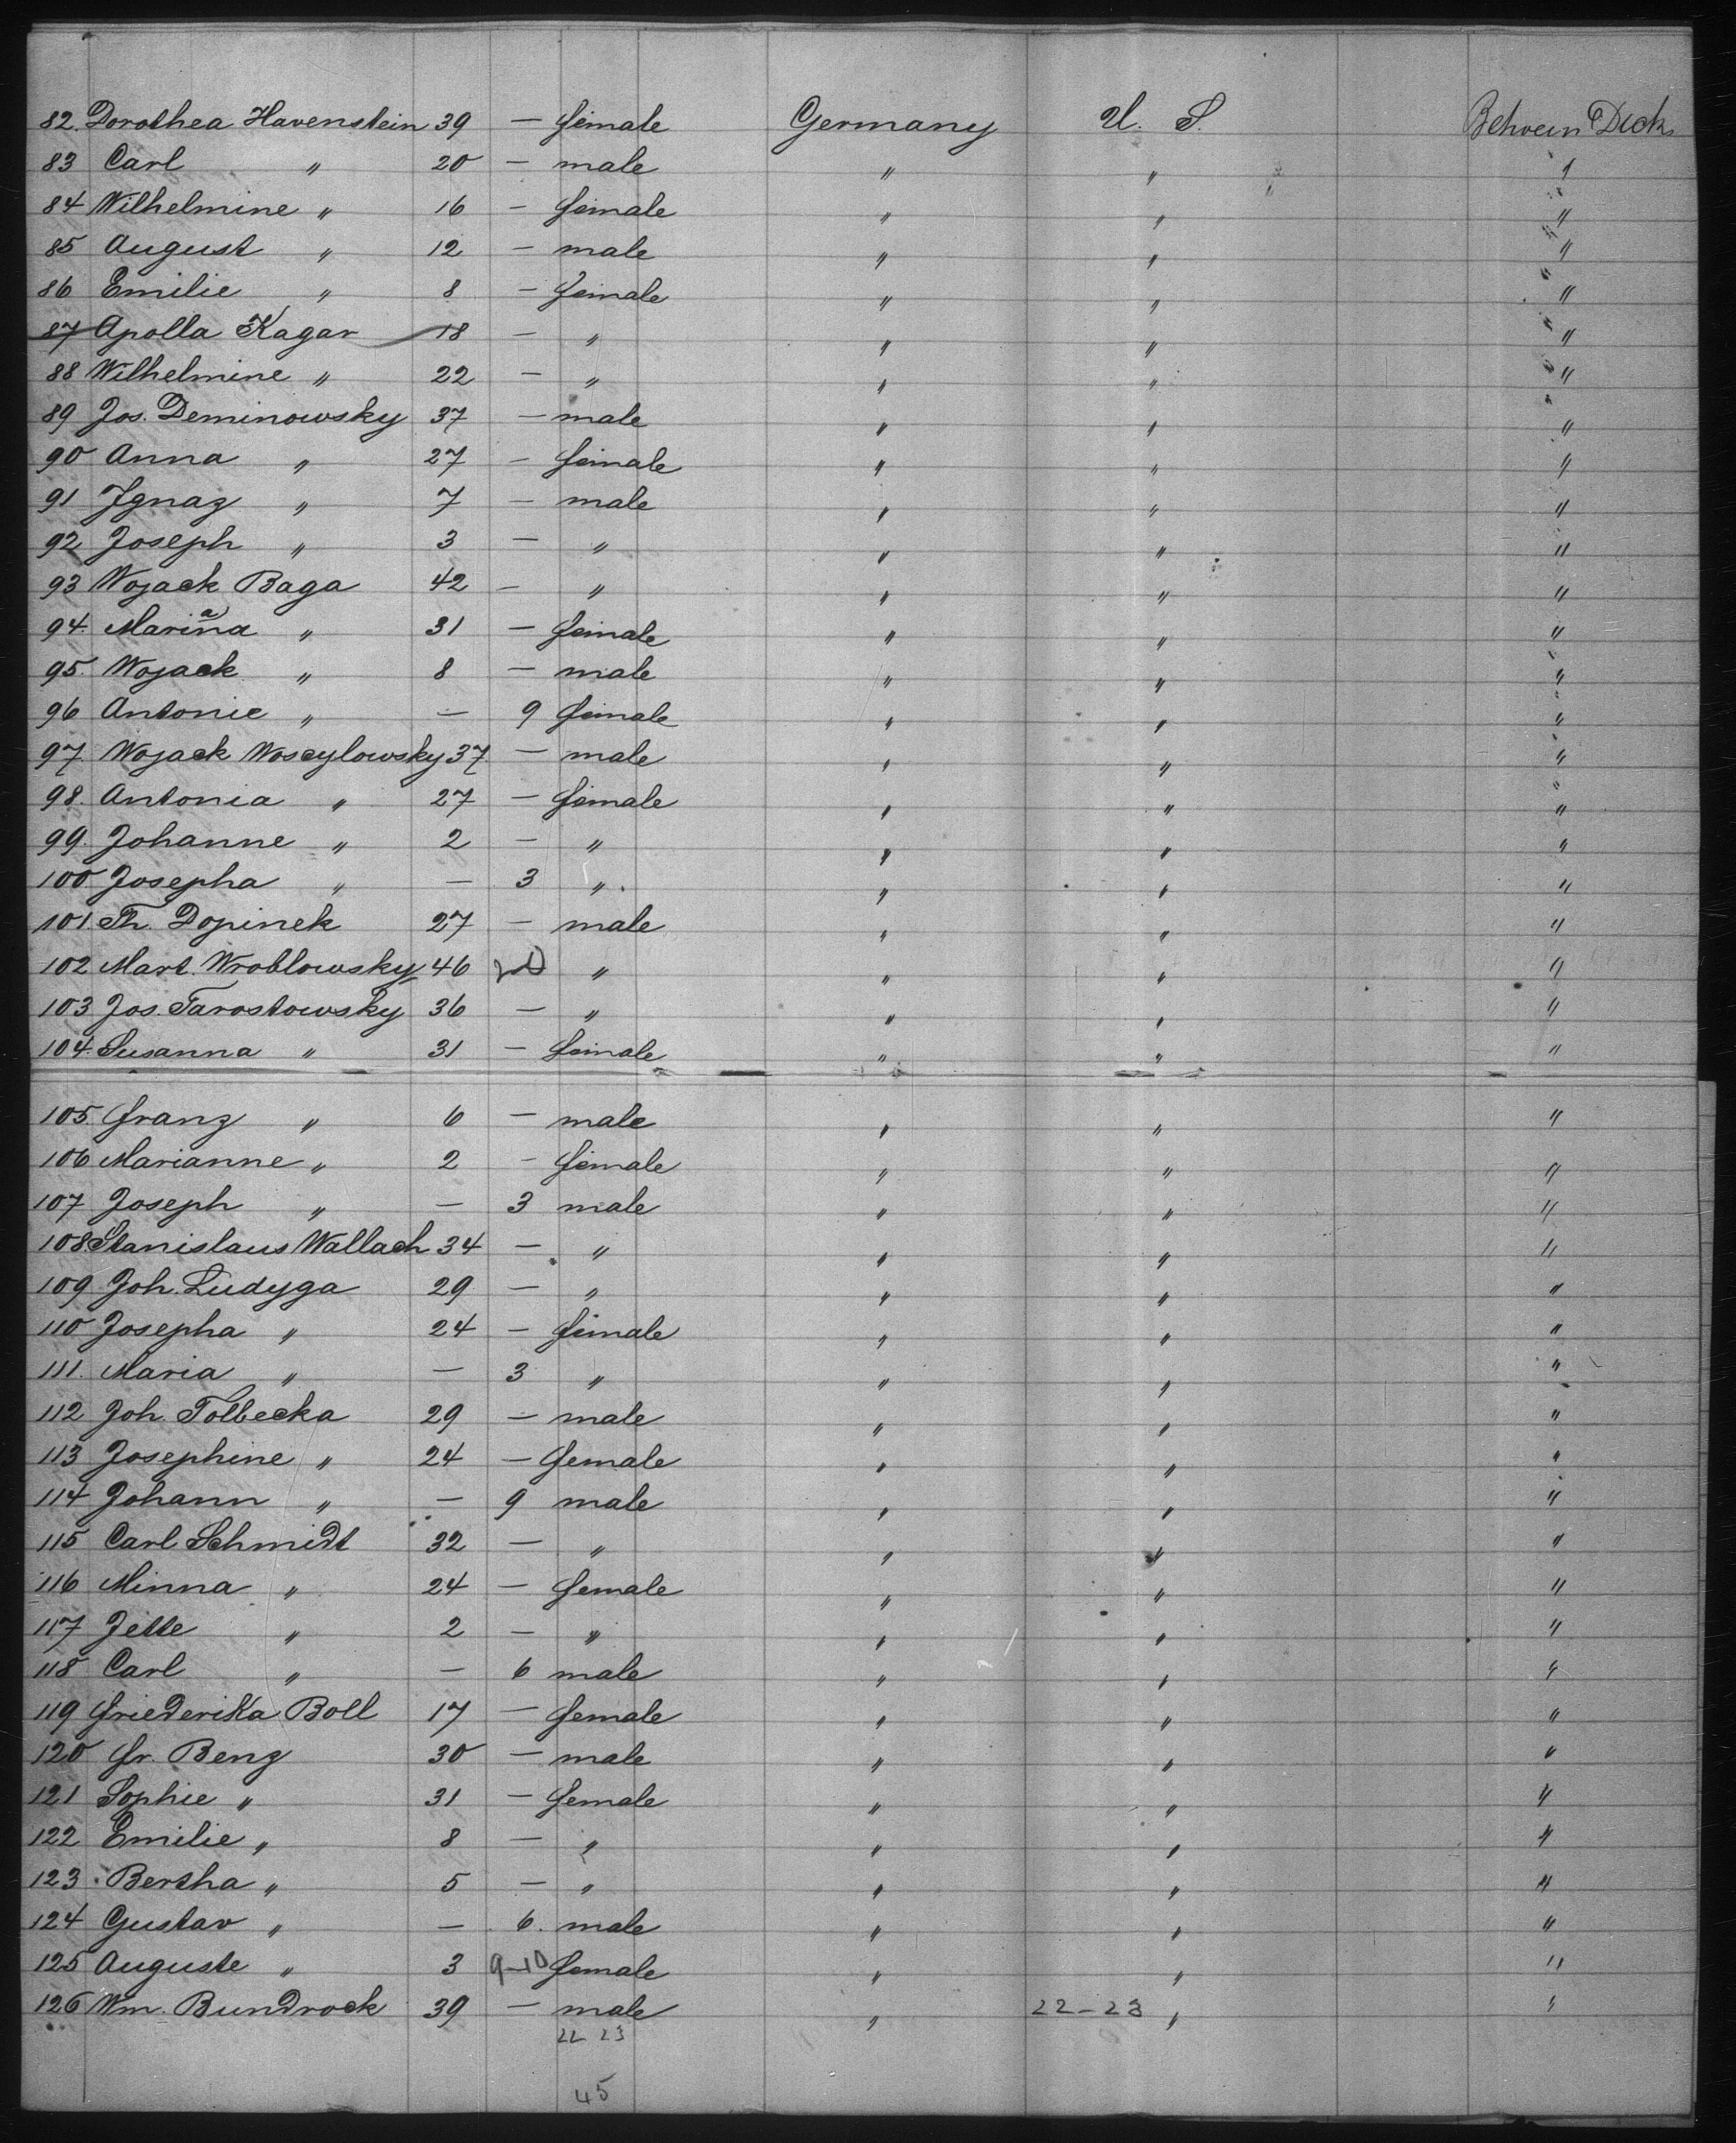 82. Dorothea Havenstein 39 — female Germany U. S. Between Deck
83 Carl " 20 — male " " "
84 Wilhelmine " 16 — female " " "
85 August " 12 — male " " "
86 Emilie " 8 — female " " "
87 Apolla Kagar 18 — " " " "
88 Wilhelmine " 22 — " " " "
89 Jos. Deminowsky 37 — male " " "
90 Anna " 27 — female " " "
91 Ignaz " 7 — male " " "
92 Joseph " 3 — " " " "
93 Wojack Baga 42 — " " " "
94. Marianna " 31 — female " " "
95. Wojack " 8 — male " " "
96 Antonie " — 9 female " " "
97. Wojack Woscylowsky 37 — male " " "
98. Antonia " 27 — female " " "
99. Johanne " 2 — " " " "
100 Josepha " — 3 " " " "
101 Th. Dopinek 27 — male " " "
102 Mart. Wroblowsky 46 " " " "
103 Jos. Tarostowsky 36 — " " " "
104. Susanna " 31 — female " " "
105. Franz " 6 — male " " "
106 Marianne " 2 — female " " "
107 Joseph " — 3 male " " "
108 Stanislaus Wallach 34 — " " " "
109 Joh. Ludyga 29 — " " " "
110 Josepha " 24 — female " " "
111. Maria " — 3 " " " "
112 Joh. Tolbecka 29 — male " " "
113 Josephine " 24 — female " " "
114 Johann " — 9 male " " "
115 Carl Schmidt 32 — " " " "
116 Minna " 24 — female " " "
117 Jette " 2 — " " " "
118 Carl " — 6 male " " "
119 Friederika Boll 17 — female " " "
120 Fr. Benz 30 — male " " "
121 Sophie " 31 — female " " "
122 Emilie " 8 — " " " "
123 Bertha " 5 — " " " "
124 Gustav " — 6. male " " "
125 Auguste " 3 9-10 female " " "
126 Wm. Bundrock 39 — male " 22-23 " "
22 23
45